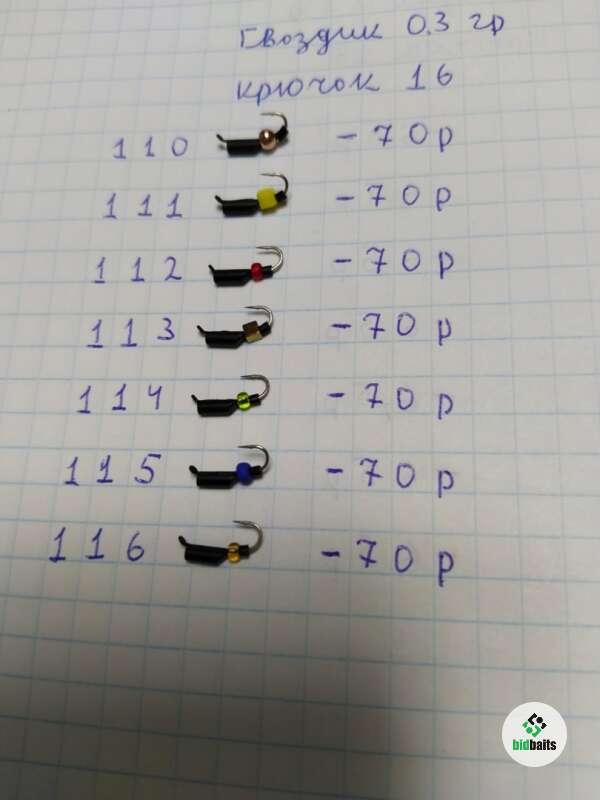 Гвоздик 0.3 гр
крючок 16
110 - 70р
111 - 70р
112 - 70р
113 - 70р
114 - 70р
115 - 70р
116 - 70р
bidbaits